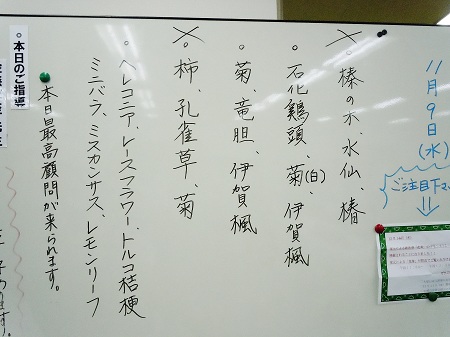 11月9日(水)
ご注目下さい
✕。榛の木、水仙、椿
。石化鶏頭、菊(白)、伊賀楓
。菊、竜胆、伊賀楓
✕。柿、孔雀草、菊
。ヘレコニア、レースフラワー、トルコ桔梗
ミニバラ、ミスカンサス、レモンリーフ
●本日最高顧問が来られます。
○本日のご指導